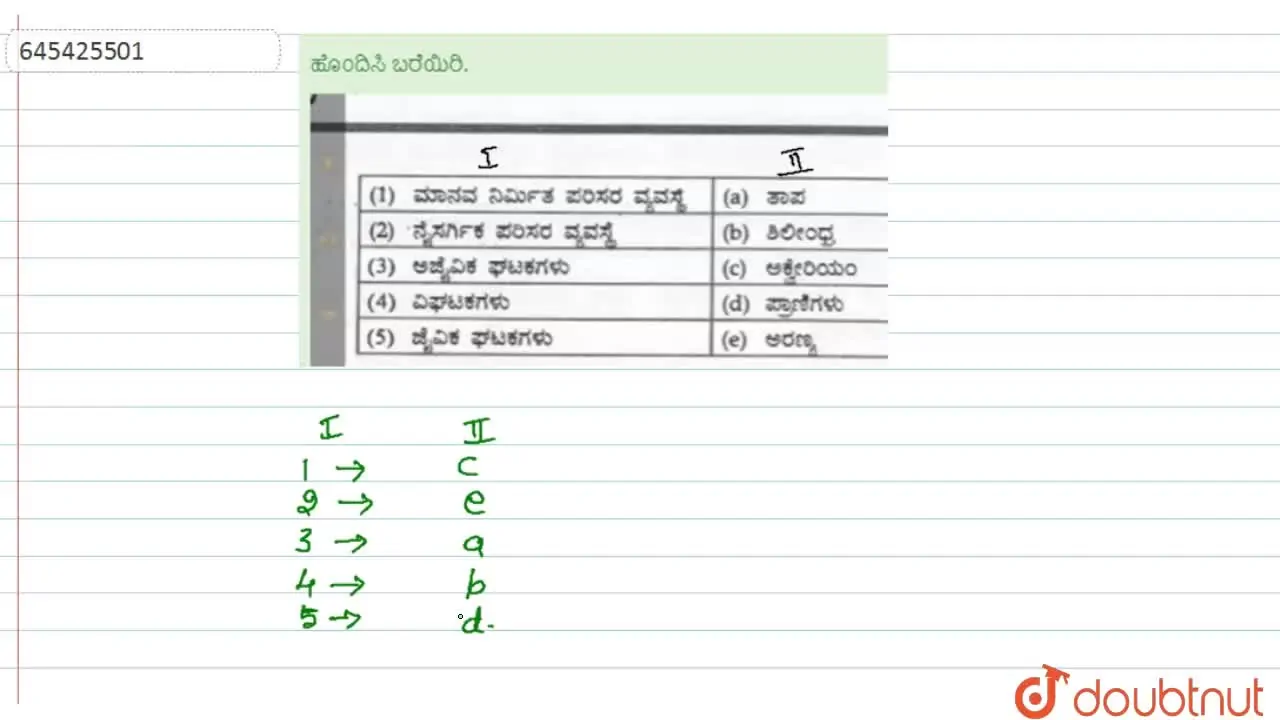 645425501
ಹೊಂದಿಸಿ ಬರೆಯಿರಿ.
I II
(1) ಮಾನವ ನಿರ್ಮಿತ ಪರಿಸರ ವ್ಯವಸ್ಥೆ (a) ತಾಪ
(2) ನೈಸರ್ಗಿಕ ಪರಿಸರ ವ್ಯವಸ್ಥೆ (b) ಶಿಲೀಂಧ್ರ
(3) ಅಜೈವಿಕ ಘಟಕಗಳು (c) ಅಕ್ವೇರಿಯಂ
(4) ವಿಘಟಕಗಳು (d) ಪ್ರಾಣಿಗಳು
(5) ಜೈವಿಕ ಘಟಕಗಳು (e) ಅರಣ್ಯ
I II
1 → c
2 → e
3 → a
4 → b
5 → d.
doubtnut